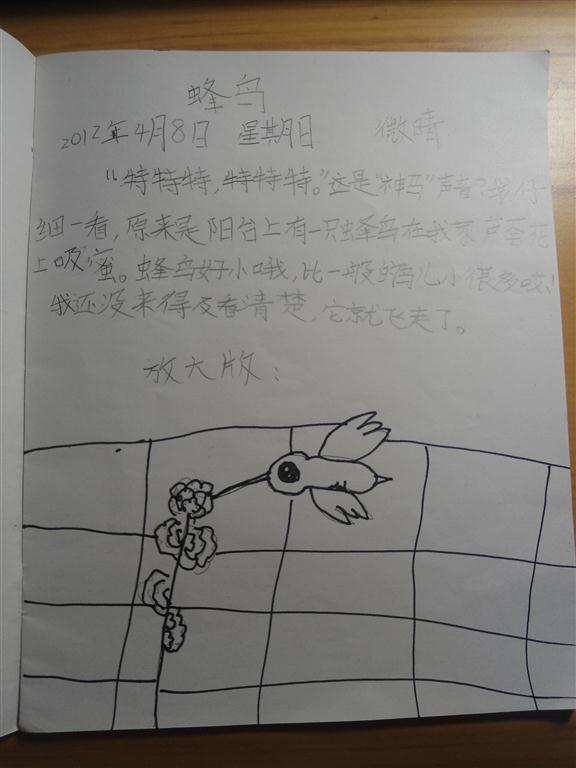 蜂鸟
2012年4月8日 星期日 微晴
“特特特,特特特。”这是“神马”声音?我仔
细一看,原来是阳台上有一只蜂鸟在我家芦荟花
上吸蜜。蜂鸟好小哦,比一般的鸟儿小很多哎!
我还没来得及看清楚,它就飞走了。
放大版: